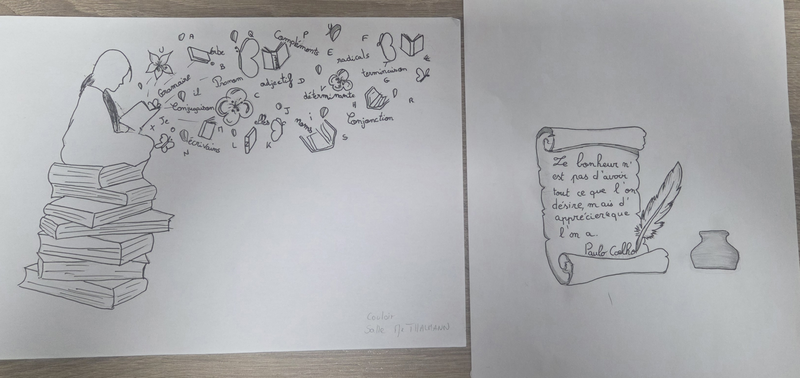 U A Q Complément P F
verbe B E radicals
Gramaire Pronom adjectif D terminaison
G
V déterminants H R
Conjugaison Conjonction
Je elles J noms i
X O écrivains M S
N L K
Couloir
Salle THALMANN
Le bonheur n'
est pas d'avoir
tout ce que l'on
désire, mais d'
apprécier que
l'on a.
Paulo Coelho